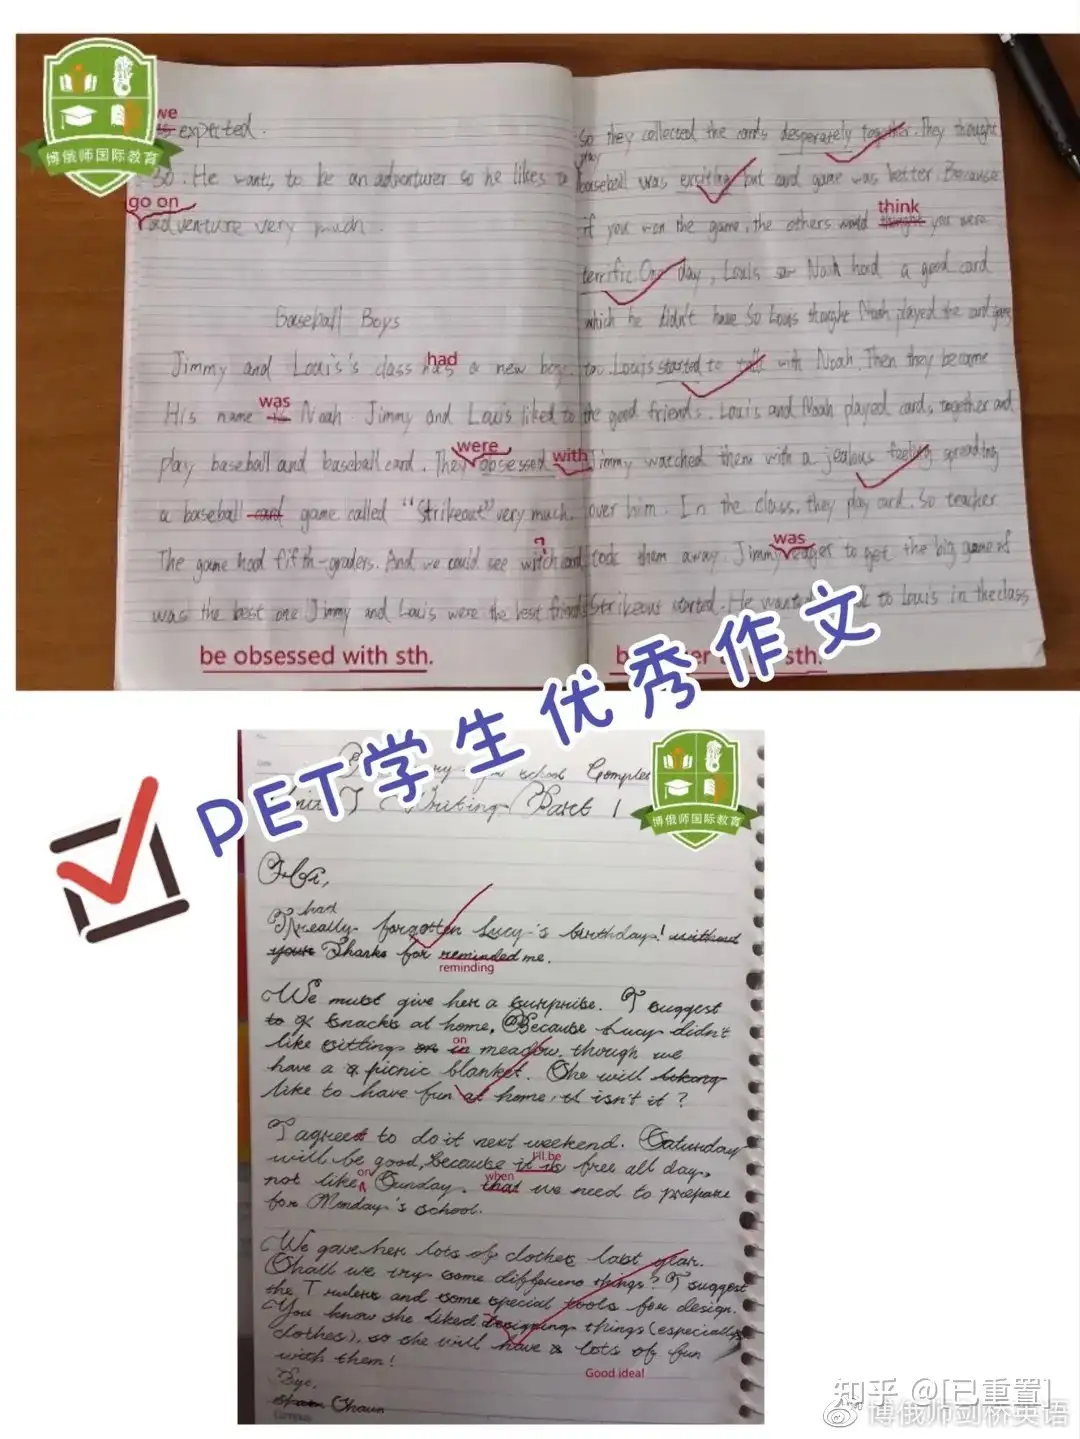 博俄师国际教育
we
expected.
so. He wants to be an adventurer so he likes to
go on
adventure very much.
Baseball Boys
Jimmy and Louis's class has a new boy.
had
His name is Noah. Jimmy and Louis liked to
was
play baseball and baseball card. They obsessed
were
with
a baseball card game called "Strikeout" very much.
The game had fifth-graders. And we could see witch card
n
was the best one. Jimmy and Louis were the best friends
be obsessed with sth.
So they collected the cards desperately together. They thought
play
baseball was exciting but card game was better. Because
if you won the game, the others would thought you were
think
terrific. One day, Louis saw Noah had a good card
which he didn't have. So Louis thought Noah played the card game
too. Louis started to talk with Noah. Then they became
the good friends. Louis and Noah played cards together and
Jimmy watched them with a jealous feeling spreading
over him. In the class, they play card. So teacher
took them away. Jimmy eager to get the big game of
was
Strikeout started. He wanted to Louis in the class
sth.
PET学生优秀作文
school Complet
Writing Part 1
博俄师国际教育
Hi,
had
I really forgotten Lucy's birthday! without
your Thanks for reminded me.
reminding
We must give her a surprise. I suggest
to snacks at home, Because Lucy didn't
like sitting on in meadow, though we
on
have a picnic blanket. She will liking
like to have fun at home, isn't it?
I agreed to do it next weekend. Saturday
will be good, because it is free all day,
I'll be
not like Sunday, that we need to prepare
on
when
for Monday's school.
We gave her lots of clothes last year.
Shall we try some different things? I suggest
the rulers and some special tools for design.
You know she liked designing things (especially
clothes), so she will have a lots of fun
with them!
Good idea!
Bye,
Shaun
知乎 @[已重置]
博俄师剑桥英语